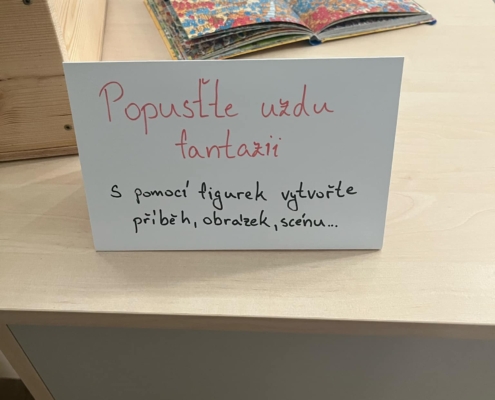 Popusťte uzdu
fantazii
S pomocí figurek vytvořte
příběh, obrázek, scénu...